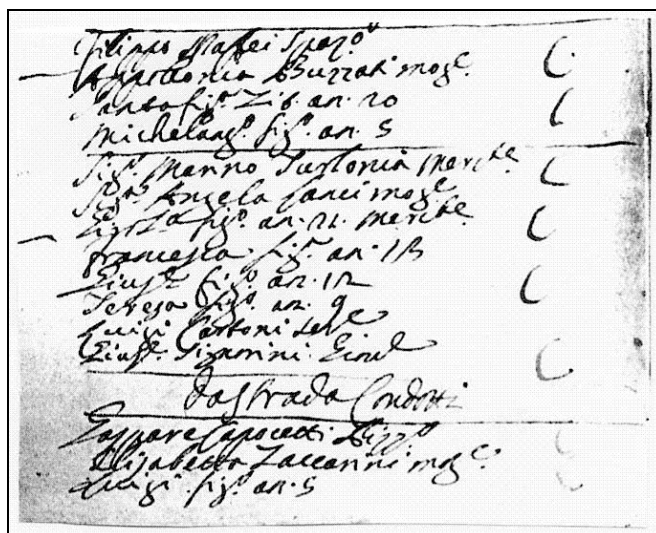 Filippo Maffei Spaz.º
Appollonia Buzzati mogᵉ.
Santa figª. Zit. an. 20
Michelangº. figº. an. 5
Sigʳ. Marino Turlonia Merctᵉ.
Sigʳᵃ Angela Lanci mogᵉ
figº. an. 21. Merctᵉ.
Francesca figª. an. 13
Giusᵉ figº. an. 12
Teresa figª. an. 9
Luigi Cartoni Servᵉ
Giusᵉ. Signorini
da Strada Condotti
Gaspare Capocetti
Elisabetta Zaccarini mogᵉ.
Luigi figº. an. 5